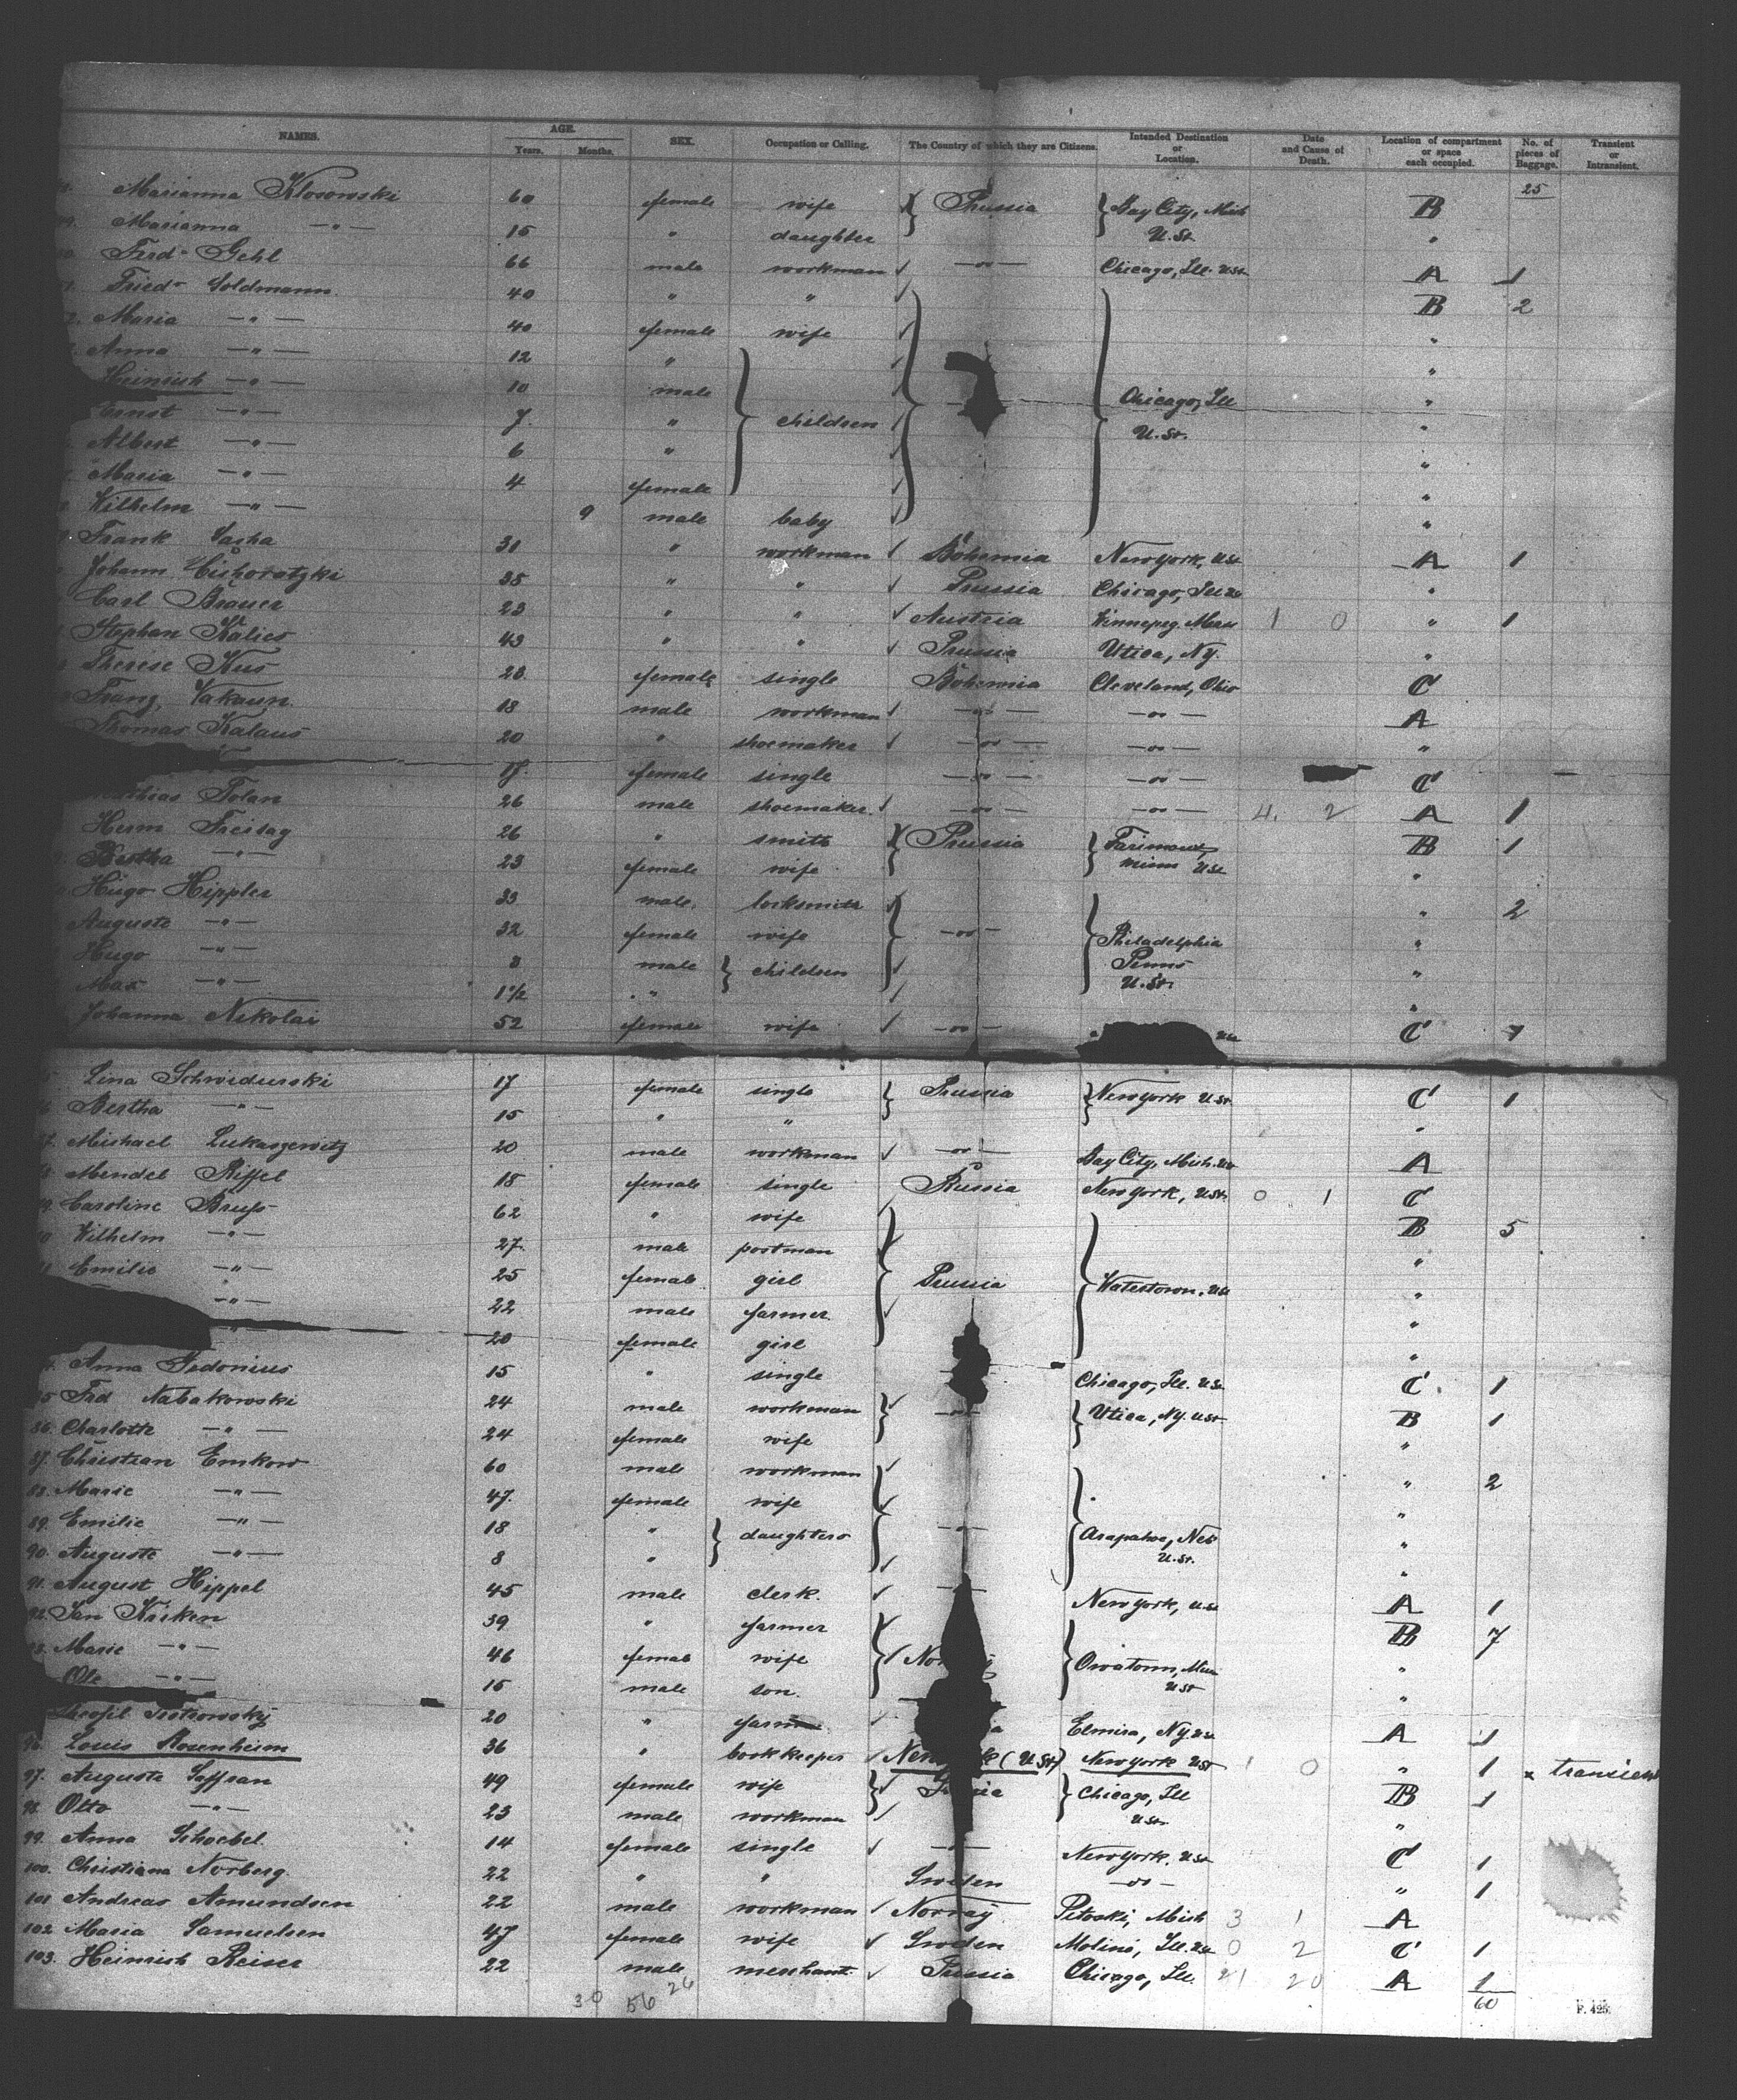 NAMES. AGE. Years. Months. SEX. Occupation or Calling. The Country of which they are Citizens. Intended Destination or Location. Date and Cause of Death. Location of compartment or space each occupied. No. of pieces of Baggage. Transient or Intransient.
25
Marianna Klosowski 60 female wife Prussia Bay City, Mich B
Marianna —"— 15 " daughter U.St. "
Ferd. Gehl 66 male workman —"— Chicago, Ill. U.St. A 1
Fried. Goldmann 40 " " B 2
Maria —"— 40 female wife "
Anna —"— 12 " "
Heinrich —"— 10 male Chicago, Ill "
Ernst —"— 7 " children U.St. "
Albert —"— 6 " "
Maria —"— 4 female "
Wilhelm —"— 9 male baby "
Frank 31 " workman Böhemia New York, U.St. A 1
Johann 35 " " Prussia Chicago, Ill "
Carl Brauer 23 " " Austria Winnepeg. 1 0 " 1
Stephan Kalies 43 " " Prussia Utica, NY. "
Therese Kus 28 female single Böhemia Cleveland, Ohio C
Franz Vakaun 18 male workman —"— —"— A
Thomas Kalaus 20 " shoemaker —"— —"— "
17 female single —"— —"— C
Tolan 26 male shoemaker —"— —"— 4. 2 A 1
Herm Freitag 26 " smith Prussia B 1
Bertha —"— 23 female wife Minn U.St. "
Hugo Hippler 33 male locksmith " 2
Auguste —"— 32 female wife —"— Philadelphia "
Hugo —"— 3 male children Penns "
Max —"— 1½ " U.St. "
Johanna Nikolai 52 female wife —"— C 1
Lina Schwidurski 17 female single Prussia New York U.St. C 1
Bertha —"— 15 " " "
Michael Lukaszewitz 20 male workman —"— Bay City, Mich. A
Mendel Riffel 18 female single Russia New York, U.St. 0 1 C
Caroline Bruss 62 " wife B 5
Wilhelm —"— 27 male postman "
Emilie —"— 25 female girl Prussia Watertown. "
—"— 22 male farmer "
—"— 20 female girl "
Anna Fedonius 15 " single Chicago, Ill. U.St. C 1
85 Frd Nabakowski 24 male workman —"— Utica, NY. U.St. B 1
86. Charlotte —"— 24 female wife "
87. Christian Emkow 60 male workman " 2
88. Marie —"— 47 female wife "
89. Emilie —"— 18 " daughters —"— Arapahoe, Neb "
90. Auguste —"— 8 " U.St. "
91. August Hippel 45 male clerk. New York, U.St. A 1
92. Jan 39 " farmer B 7
93. Marie —"— 46 female wife Owatonn, Minn "
Ole —"— 15 male son. U.St. "
20 " Elmira, NY. A 1
96. Louis Rosenheim 36 " bookkeeper New York (U.St) New York U.St 1 0 " 1 x transient
97. Auguste Saffran 49 female wife Chicago, Ill B 1
98. Otto —"— 23 male workman U.St. "
99. Anna Schoebel 14 female single —"— New York. U.St. C 1
100. Christiana Norberg. 22 " " Sweden —"— " 1
101 Andreas Amundsen 22 male workman Norway Petoski, Mich 3 1 A
102 Maria Samuelsen 47 female wife Sweden Moline, Ill. 0 2 C 1
103. Heinrich Reiser 22 male merchant Prussia Chicago, Ill. 21 20 A 1
30 56 26 60
F. 425.